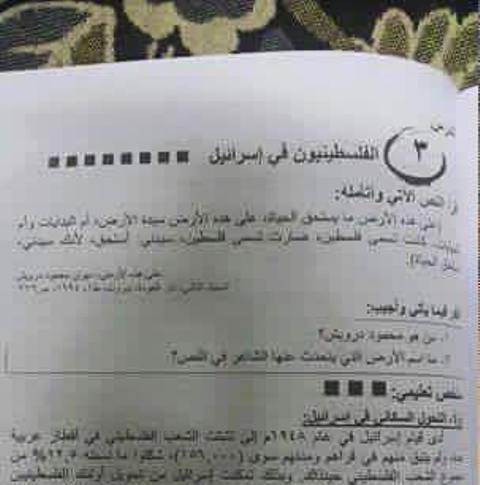 ٣
الفلسطينيون في إسرائيل
النص الآتي وأتأمله:
(على هذه الأرض ما يستحق الحياة، على هذه الأرض سيدة الأرض، أم البدايات وأم
كانت تسمى فلسطين، صارت تسمى فلسطين، سيدتي أستحق، لأنك سيدتي،
الحياة).
على هذه الأرض، محمود درويش
فيما يأتي وأجيب:
١. من هو محمود درويش؟
٢. ما اسم الأرض التي يتحدث عنها الشاعر في النص؟
نص تعليمي:
أولاً، التحول السكاني في إسرائيل:
أدى قيام إسرائيل في عام ١٩٤٨م إلى تشتت الشعب الفلسطيني في أقطار عربية
يبق منهم في قراهم ومدنهم سوى (١٥٦,٠٠٠)، شكلوا ما نسبته ١٢,٥% من
الشعب الفلسطيني حينذاك، وبذلك تمكنت إسرائيل من تحويل أولئك الفلسطينيين